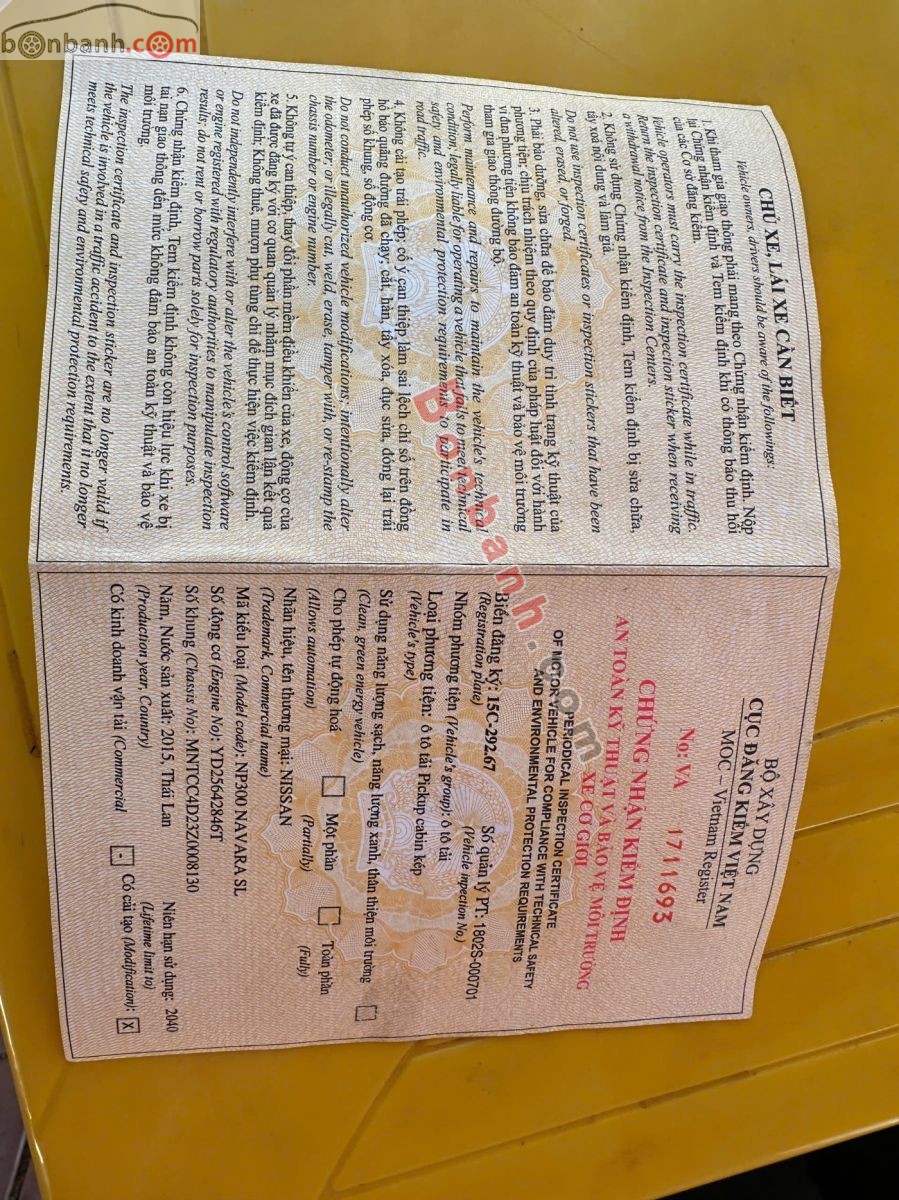 bonbanh.com
CHỦ XE, LÁI XE CẦN BIẾT
Vehicle owners, drivers should be aware of the followings:
1. Khi tham gia giao thông phải mang theo Chứng nhận kiểm định. Nộp
lại Chứng nhận kiểm định và Tem kiểm định khi có thông báo thu hồi
của các Cơ sở đăng kiểm.
Vehicle operators must carry the inspection certificate while in traffic.
Return the inspection certificate and inspection sticker when receiving
a withdrawal notice from the Inspection Centers.
2. Không sử dụng Chứng nhận kiểm định, Tem kiểm định bị sửa chữa,
tẩy xoá nội dung và làm giả.
Do not use inspection certificates or inspection stickers that have been
altered, erased, or forged.
3. Phải bảo dưỡng, sửa chữa để bảo đảm duy trì tình trạng kỹ thuật của
phương tiện; chịu trách nhiệm theo quy định của pháp luật đối với hành
vi đưa phương tiện không bảo đảm an toàn kỹ thuật và bảo vệ môi trường
tham gia giao thông đường bộ.
Perform maintenance and repairs to maintain the vehicle's technical
condition; legally liable for operating a vehicle that fails to meet technical
safety and environmental protection requirements to participate in
road traffic.
4. Không cải tạo trái phép; cố ý can thiệp làm sai lệch chỉ số trên đồng
hồ báo quãng đường đã chạy; cắt, hàn, tẩy xóa, đục sửa, đóng lại trái
phép số khung, số động cơ
Do not conduct unauthorized vehicle modifications; intentionally alter
the odometer, or illegally cut, weld, erase, tamper with, or re-stamp the
chassis number or engine number.
5. Không tự ý can thiệp, thay đổi phần mềm điều khiển của xe, động cơ của
xe đã được đăng ký với cơ quan quản lý nhằm mục đích gian lận kết quả
kiểm định; Không thuê, mượn phụ tùng chỉ để thực hiện việc kiểm định.
Do not independently interfere with or alter the vehicle's control software
or engine registered with regulatory authorities to manipulate inspection
results; do not rent or borrow parts solely for inspection purposes.
6. Chứng nhận kiểm định, Tem kiểm định không còn hiệu lực khi xe bị
tai nạn giao thông đến mức không đảm bảo an toàn kỹ thuật và bảo vệ
môi trường.
The inspection certificate and inspection sticker are no longer valid if
the vehicle is involved in a traffic accident to the extent that it no longer
meets technical safety and environmental protection requirements.
BỘ XÂY DỰNG
CỤC ĐĂNG KIỂM VIỆT NAM
MOC – Vietnam Register
No: VA 1711693
CHỨNG NHẬN KIỂM ĐỊNH
AN TOÀN KỸ THUẬT VÀ BẢO VỆ MÔI TRƯỜNG
XE CƠ GIỚI
PERIODICAL INSPECTION CERTIFICATE
OF MOTOR VEHICLE FOR COMPLIANCE WITH TECHNICAL SAFETY
AND ENVIRONMENTAL PROTECTION REQUIREMENTS
Biển đăng ký: 15C-292.67 Số quản lý PT: 1802S-000701
(Registration plate) (Vehicle inpection No.)
Nhóm phương tiện (Vehicle's group): ô tô tải
Loại phương tiện: ô tô tải Pickup cabin kép
(Vehicle's type)
Sử dụng năng lượng sạch, năng lượng xanh, thân thiện môi trường
(Clean, green energy vehicle)
Cho phép tự động hoá Một phần Toàn phần
(Allows automation) (Partially) (Fully)
Nhãn hiệu, tên thương mại: NISSAN
(Trademark, Commercial name)
Mã kiểu loại (Model code): NP300 NAVARA SL
Số động cơ (Engine No): YD25642846T
Số khung (Chassis No): MNTCC4D23Z0008130
Năm, Nước sản xuất: 2015, Thái Lan Niên hạn sử dụng: 2040
(Production year, Country) (Lifetime limit to)
Có kinh doanh vận tải (Commercial - Có cải tạo (Modification): X
Bonbanh.com